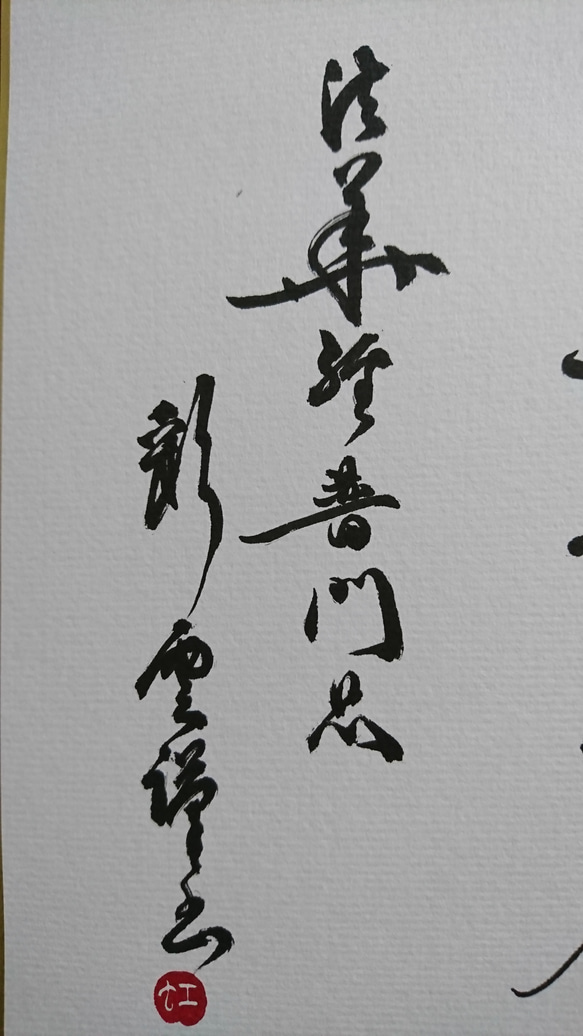 法華經普門品
雲禪書
虹